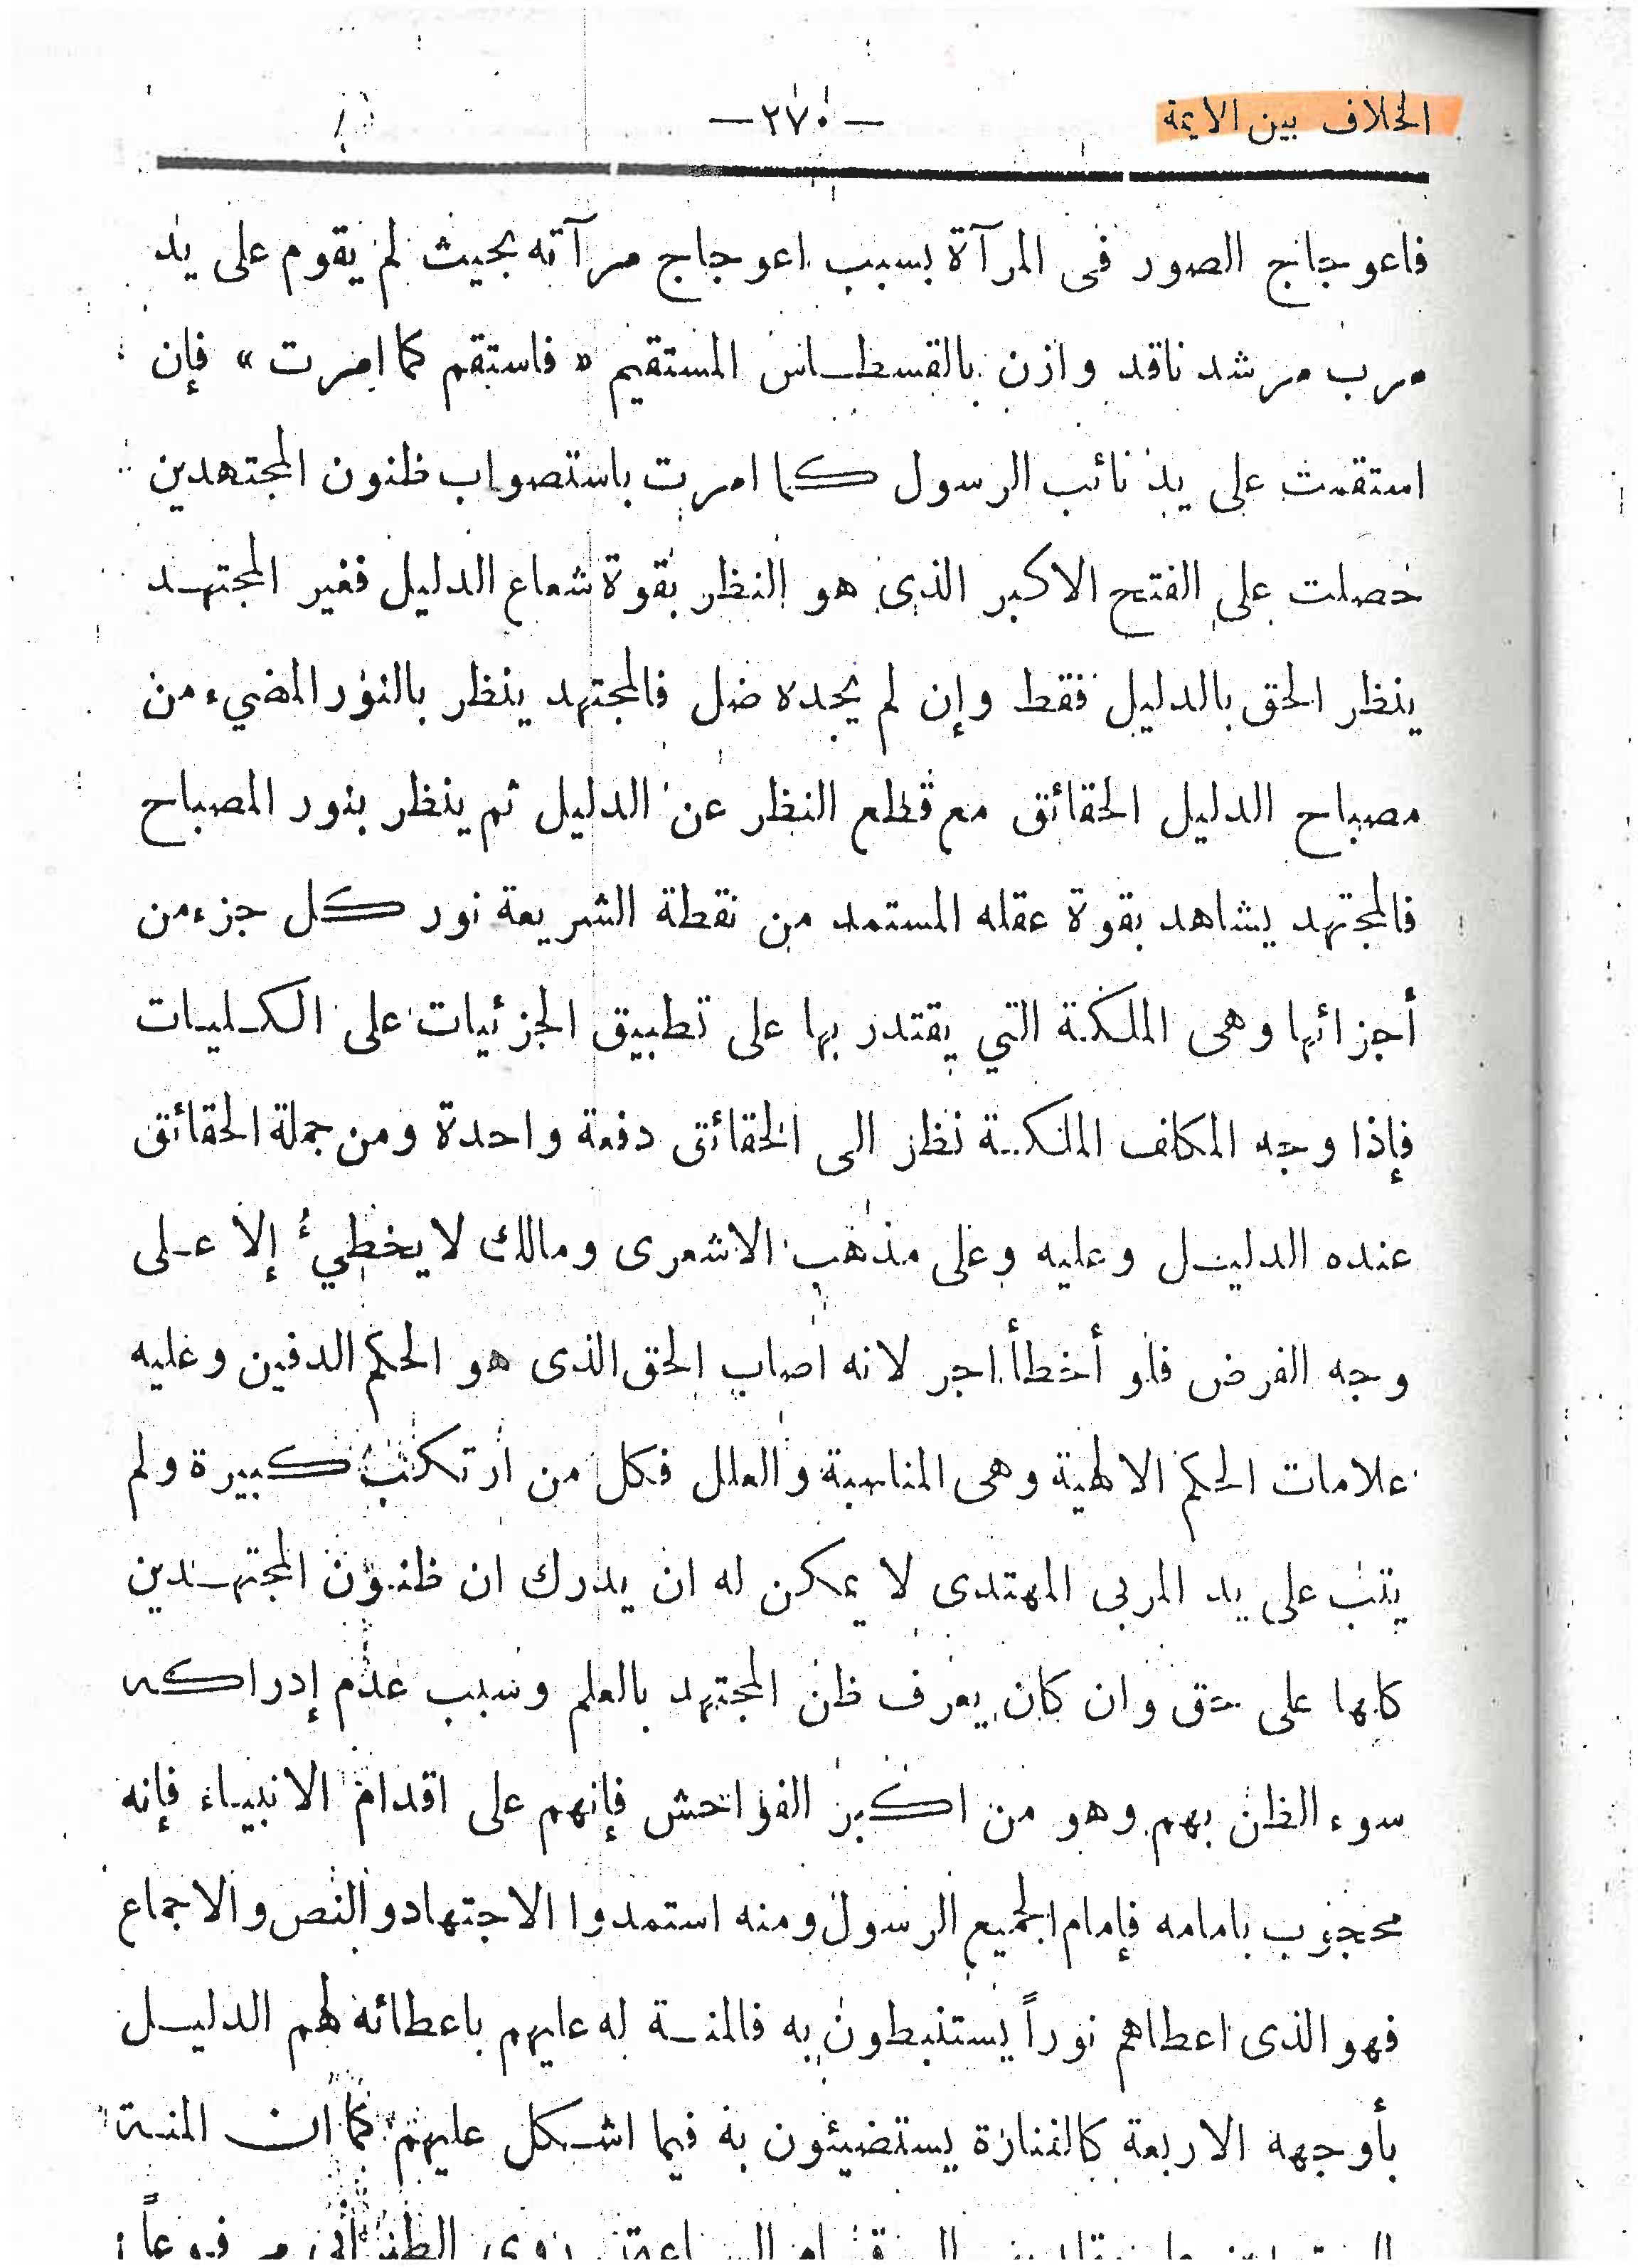 الخلاف بين الايمة
—٢٧٠—
فاعوجاج الصور فى المرآة بسبب اعوجاج مرآته بحيث لم يقوم على يد
مرب مرشد ناقد وازن بالقسطاس المستقيم « فاستقم كما امرت » فإن
استقمت على يد نائب الرسول كما امرت باستصواب ظنون المجتهدين
حصلت على الفتح الاكبر الذى هو النظر بقوة شعاع الدليل فغير المجتهد
ينظر الحق بالدليل فقط وإن لم يجده ضل فالمجتهد ينظر بالنور المضيء من
مصباح الدليل الحقائق مع قطع النظر عن الدليل ثم ينظر بنور المصباح
فالمجتهد يشاهد بقوة عقله المستمد من نقطة الشريعة نور كل جزء من
أجزائها وهى الملكة التي يقتدر بها على تطبيق الجزئيات على الكليات
فإذا وجه المكلف الملكة نظر الى الحقائق دفعة واحدة ومن جملة الحقائق
عنده الدليل وعليه وعلى مذهب الاشعرى ومالك لا يخطيءُ إلا على
وجه الفرض فلو أخطأ اجر لانه اصاب الحق الذى هو الحكم الدفين وعليه
علامات الحكم الالهية وهى المناسبة والعلل فكل من ارتكب كبيرة ولم
يتب على يد المربى المهتدى لا يمكن له ان يدرك ان ظنون المجتهدين
كلها على حق وان كان يعرف ظن المجتهد بالعلم وسبب عدم إدراكه
سوء الظن بهم وهو من اكبر الفواحش فإنهم على اقدام الانبياء فإنه
محجوب بامامه فإمام الجميع الرسول ومنه استمدوا الاجتهاد والنص والاجماع
فهو الذى اعطاهم نوراً يستنبطون به فالمنة له عليهم باعطائه لهم الدليل
بأوجهه الاربعة كالمنارة يستضيئون به فيما اشكل عليهم كما ان المنة